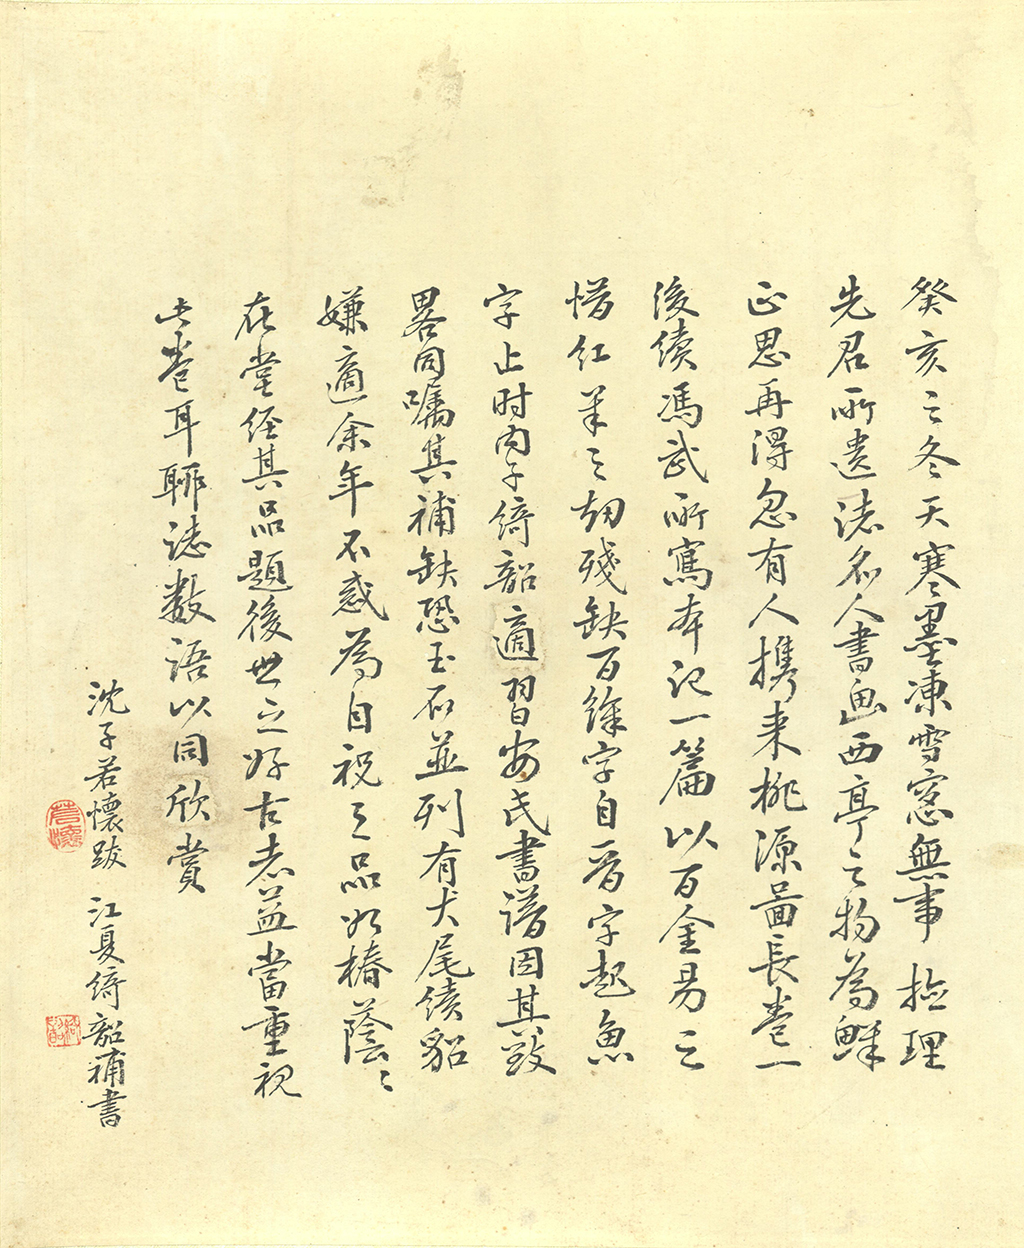 癸亥之冬天寒墨凍雪窓無事 撿理
先君所遺諸名人書画西亭之物為鮮
正思再得忽有人携来桃源畵長卷一
後續馮武所寫本記一篇以百金易之
惜紅羊之劫殘缺百餘字自晉字起魚
字止时内子綺韶適習安氏書譜因其致
畧同囑其補缺恐玉石並列有犬尾續貂
嫌適余年不惑為自祝之品如椿蔭〻
在堂經其品題後世之好古者益當重視
此卷耳聊誌數语以同欣賞
沈子若懷跋 江夏綺韶補書
若懷
綺韶